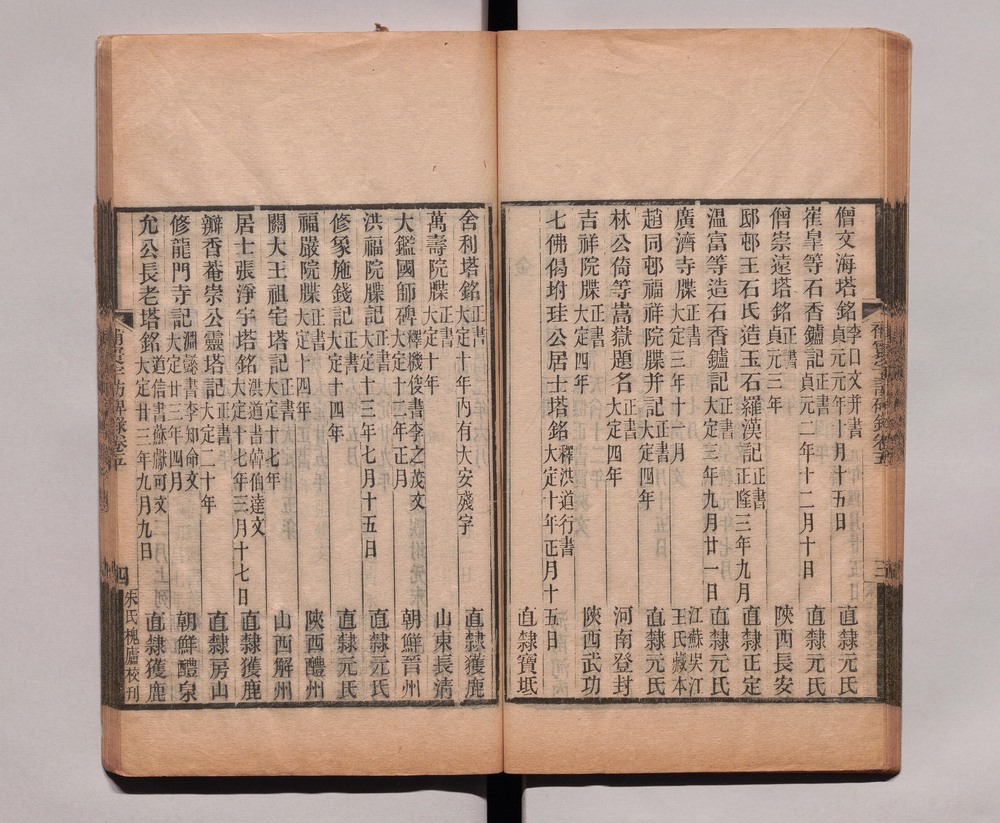 僧文海塔銘 李口文并書 貞元元年十月十五日 直隸元氏
崔皐等石香鑪記 正書 貞元二年十二月十日 直隸元氏
僧崇遠塔銘 正書 貞元三年 陝西長安
邸邨王石氏造玉石羅漢記 正書 正隆三年九月 直隸正定
溫富等造石香鑪記 大定三年九月廿一日 直隸元氏
廣濟寺牒 正書 大定三年十一月 江蘇吳江王氏藏本
趙同邨福祥院牒并記 正書 大定四年 直隸元氏
林公倚等嵩嶽題名 正書 大定四年 河南登封
吉祥院牒 正書 大定四年 陝西武功
七佛偈坿珪公居士塔銘 釋洪道行書 大定十年正月十五日 直隸寶坻
舍利塔銘 正書 大定十年內有大安殘字 直隸獲鹿
萬壽院牒 正書 大定十年 山東長清
大鑑國師碑 釋機俊書李之茂文 大定十二年正月 朝鮮晉州
洪福院牒記 正書 大定十三年七月十五日 直隸元氏
修象施錢記 正書 大定十四年 直隸元氏
福嚴院牒 正書 大定十四年 陝西醴州
關大王祖宅塔記 正書 大定十七年 山西解州
居士張淨宇塔銘 洪道書韓仙達文 大定十七年三月十七日 直隸獲鹿
辦香菴崇公靈塔記 正書 大定二十年 直隸房山
修龍門寺記 淵懿書李知命文 大定廿三年四月 朝鮮醴泉
允公長老塔銘 道信書蘇獻可文 大定廿三年九月九日 直隸獲鹿
四 朱氏槐廬校刊